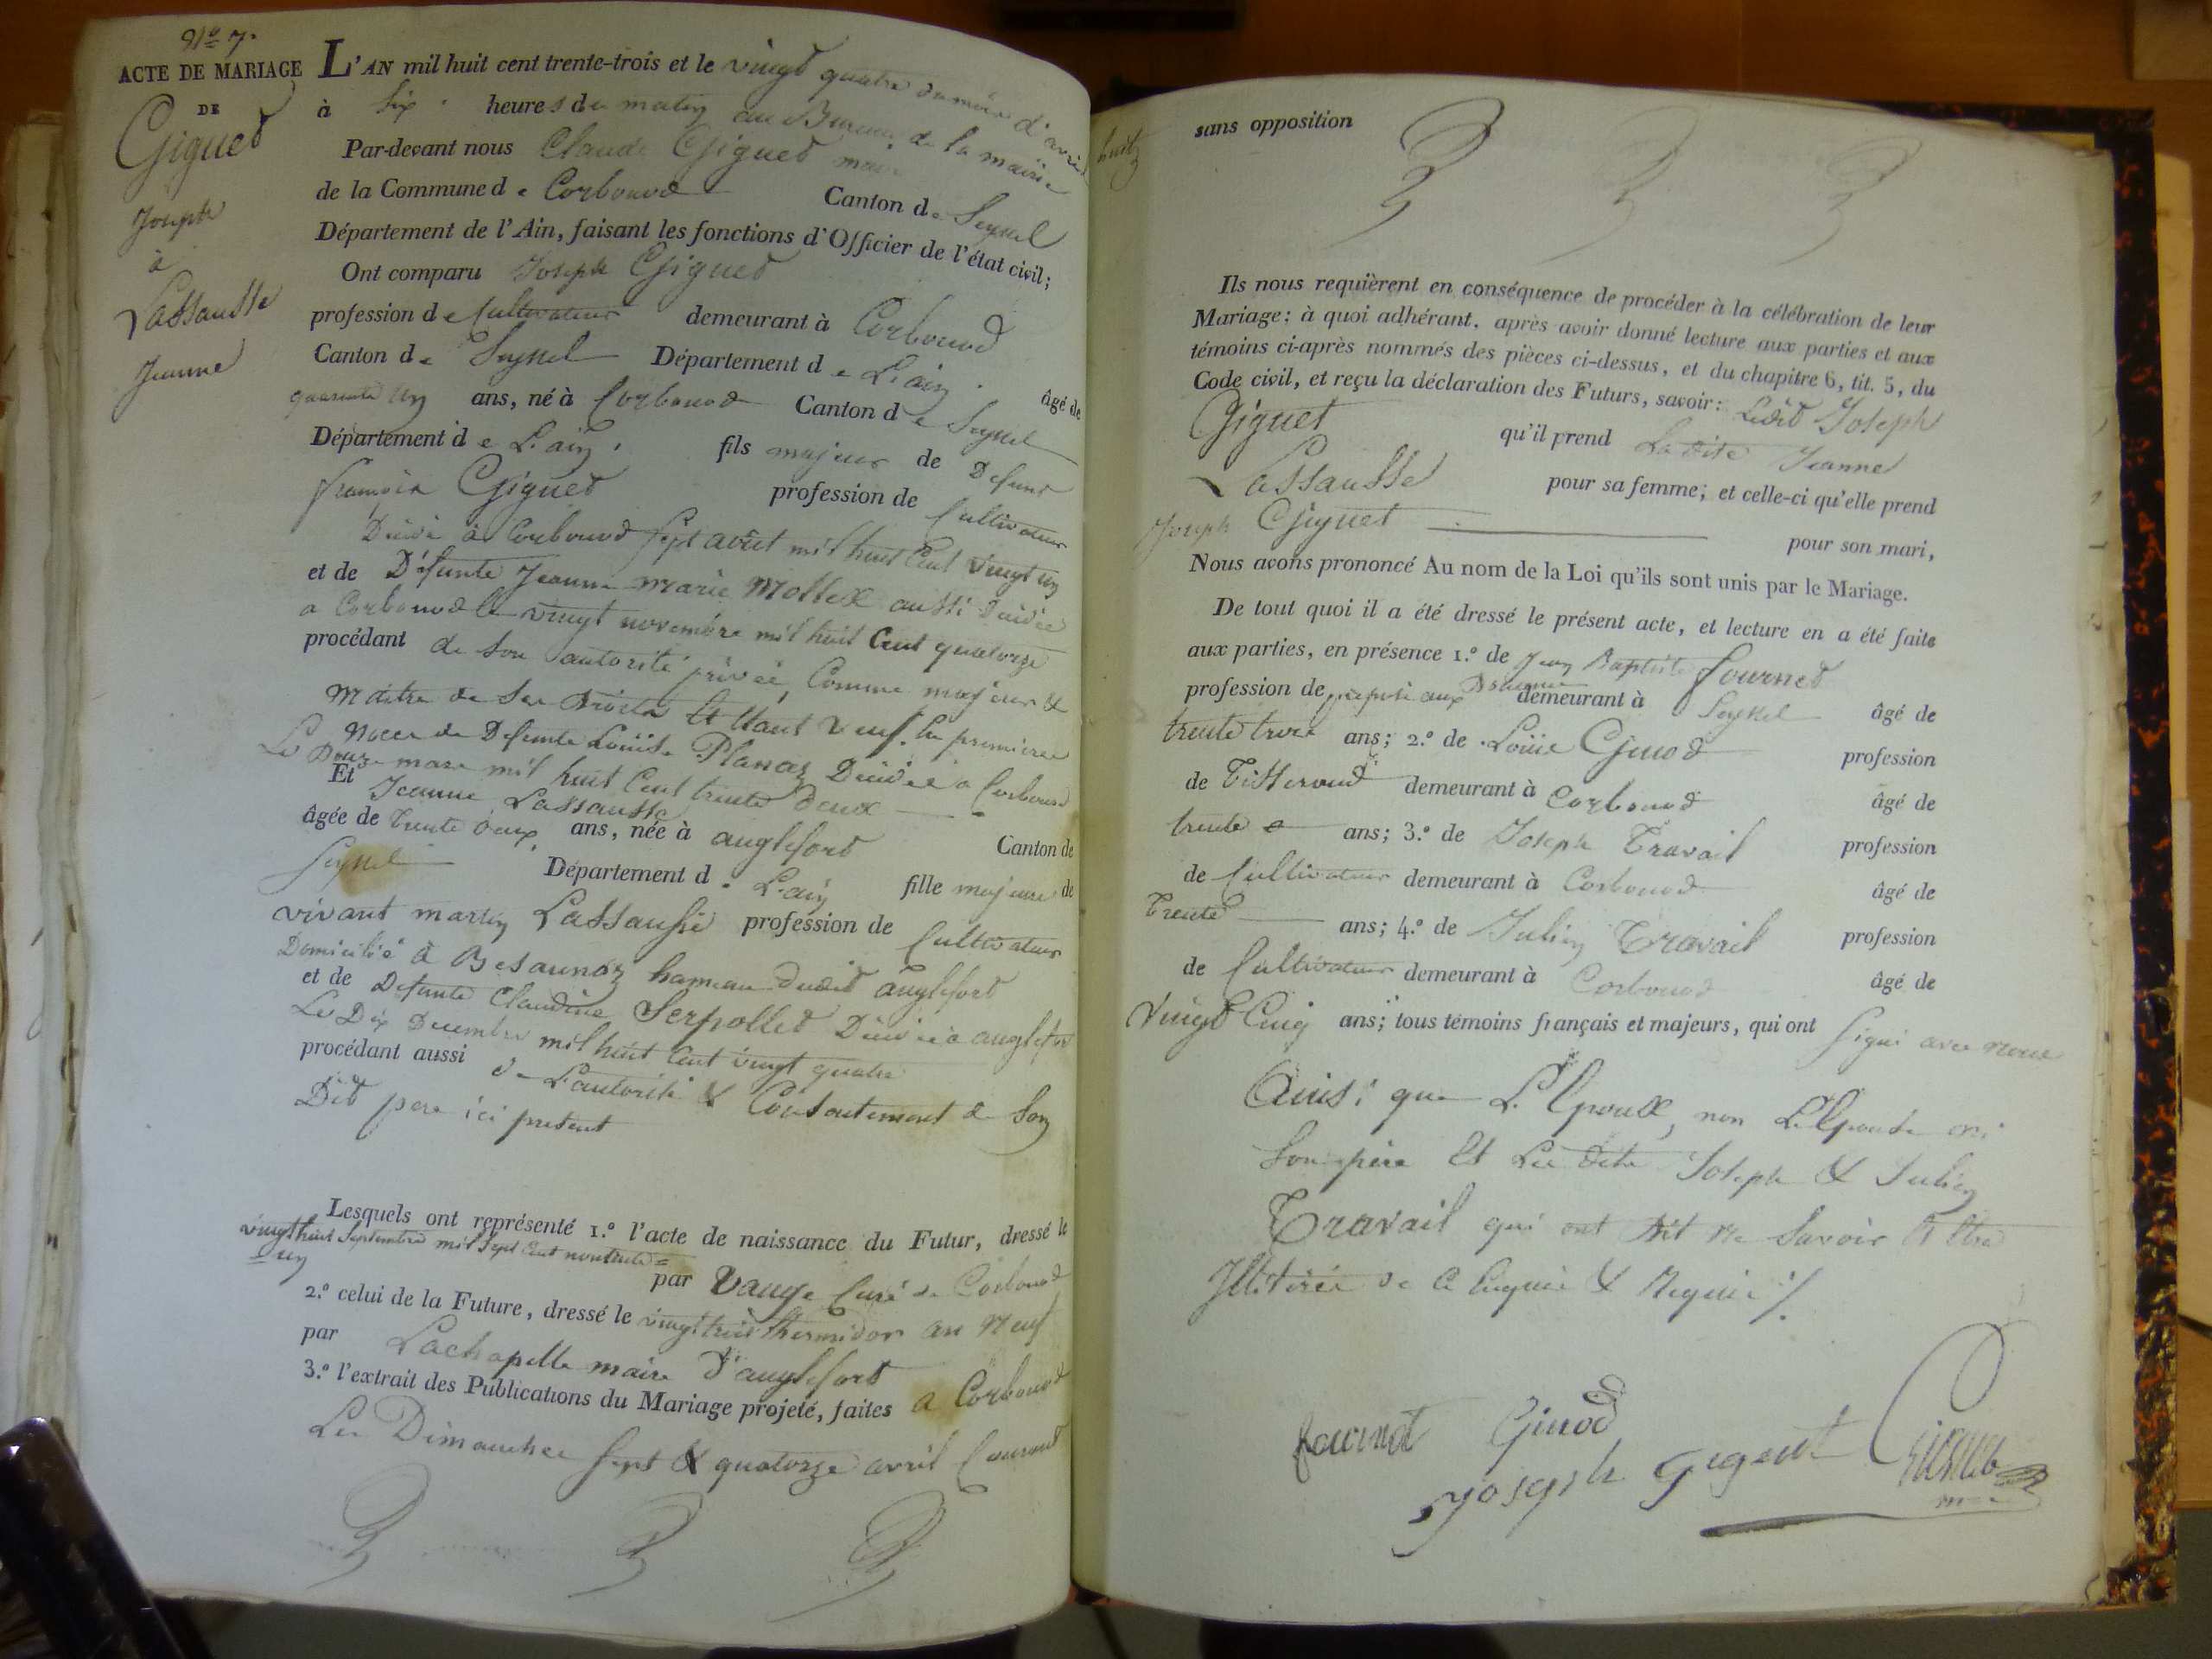 N.º 7.
ACTE DE MARIAGE
DE
Giguet
Joseph
à
Lassausse
Jeanne
L'AN mil huit cent trente-trois et le vingt quatre du mois d'avril
à six heures du matin au Bureau de la mairie
Par-devant nous Claude Giguet maire
de la Commune de Corbonod Canton de Seyssel
Département de l'Ain, faisant les fonctions d'Officier de l'état civil;
Ont comparu Joseph Giguet
profession de Cultivateur demeurant à Corbonod
Canton de Seyssel Département de L'ain âgé de
quarante un ans, né à Corbonod Canton de Seyssel
Département de L'ain, fils majeur de Defunt
françois Giguet profession de Cultivateur
Décédé à Corbonod sept août mil huit Cent vingt un
et de Défunte Jeanne marie Mollex aussi Décédée
a Corbonod le vingt novembre mil huit Cent quatorze
procédant de son autorité privée, Comme majeur &
maitre de ses droits Et Etant veuf en premieres
noces de Defunte Louise Planaz Décédée a Corbonod
Le Douze mars mil huit Cent trente deux
Et Jeanne Lassausse
âgée de trente deux ans, née à anglefort Canton de
Seyssel Département de L'ain fille majeure de
vivant martin Lassausse profession de Cultivateur
Domicilié à Besaunoz hameau dudit anglefort
et de Defunte Claudine Serpollet Décédée à anglefort
Le Dix Decembre mil huit Cent vingt quatre
procédant aussi de L'autorité & Consentement de Son
Dit pere ici present
Lesquels ont représenté 1.º l'acte de naissance du Futur, dressé le
vingt huit Septembre mil sept Cent nonante=
=un par Vauge Curé de Corbonod
2.º celui de la Future, dressé le vingt trois thermidor an Neuf
par Lachapelle maire d'anglefort
3.º l'extrait des Publications du Mariage projeté, faites a Corbonod
Les Dimanches sept & quatorze avril Courant
huit
sans opposition
Ils nous requièrent en conséquence de procéder à la célébration de leur
Mariage: à quoi adhérant, après avoir donné lecture aux parties et aux
témoins ci-après nommés des pièces ci-dessus, et du chapitre 6, tit. 5, du
Code civil, et reçu la déclaration des Futurs, savoir: Ledit Joseph
Giguet qu'il prend La dite Jeanne
Lassausse pour sa femme; et celle-ci qu'elle prend
Joseph Giguet pour son mari,
Nous avons prononcé Au nom de la Loi qu'ils sont unis par le Mariage.
De tout quoi il a été dressé le présent acte, et lecture en a été faite
aux parties, en présence 1.º de Jean Baptiste fournet
profession de preposé aux Douanes demeurant à Seyssel âgé de
trente trois ans; 2.º de Louis Ginod profession
de Tisserand demeurant à Corbonod âgé de
trente ans; 3.º de Joseph Travail profession
de Cultivateur demeurant à Corbonod âgé de
Trente ans; 4.º de Julien Travail profession
de Cultivateur demeurant à Corbonod âgé de
Vingt Cinq ans; tous témoins français et majeurs, qui ont signé avec nous
Ainsi que L'Epoux, non L'Epouse ni
Son père Et Les dits Joseph & Julien
Travail qui ont dit ne Savoir Et Etre
Illitérés de ce Enquis & Requis ./.
fournet Ginod
joseph gigeut Giguet